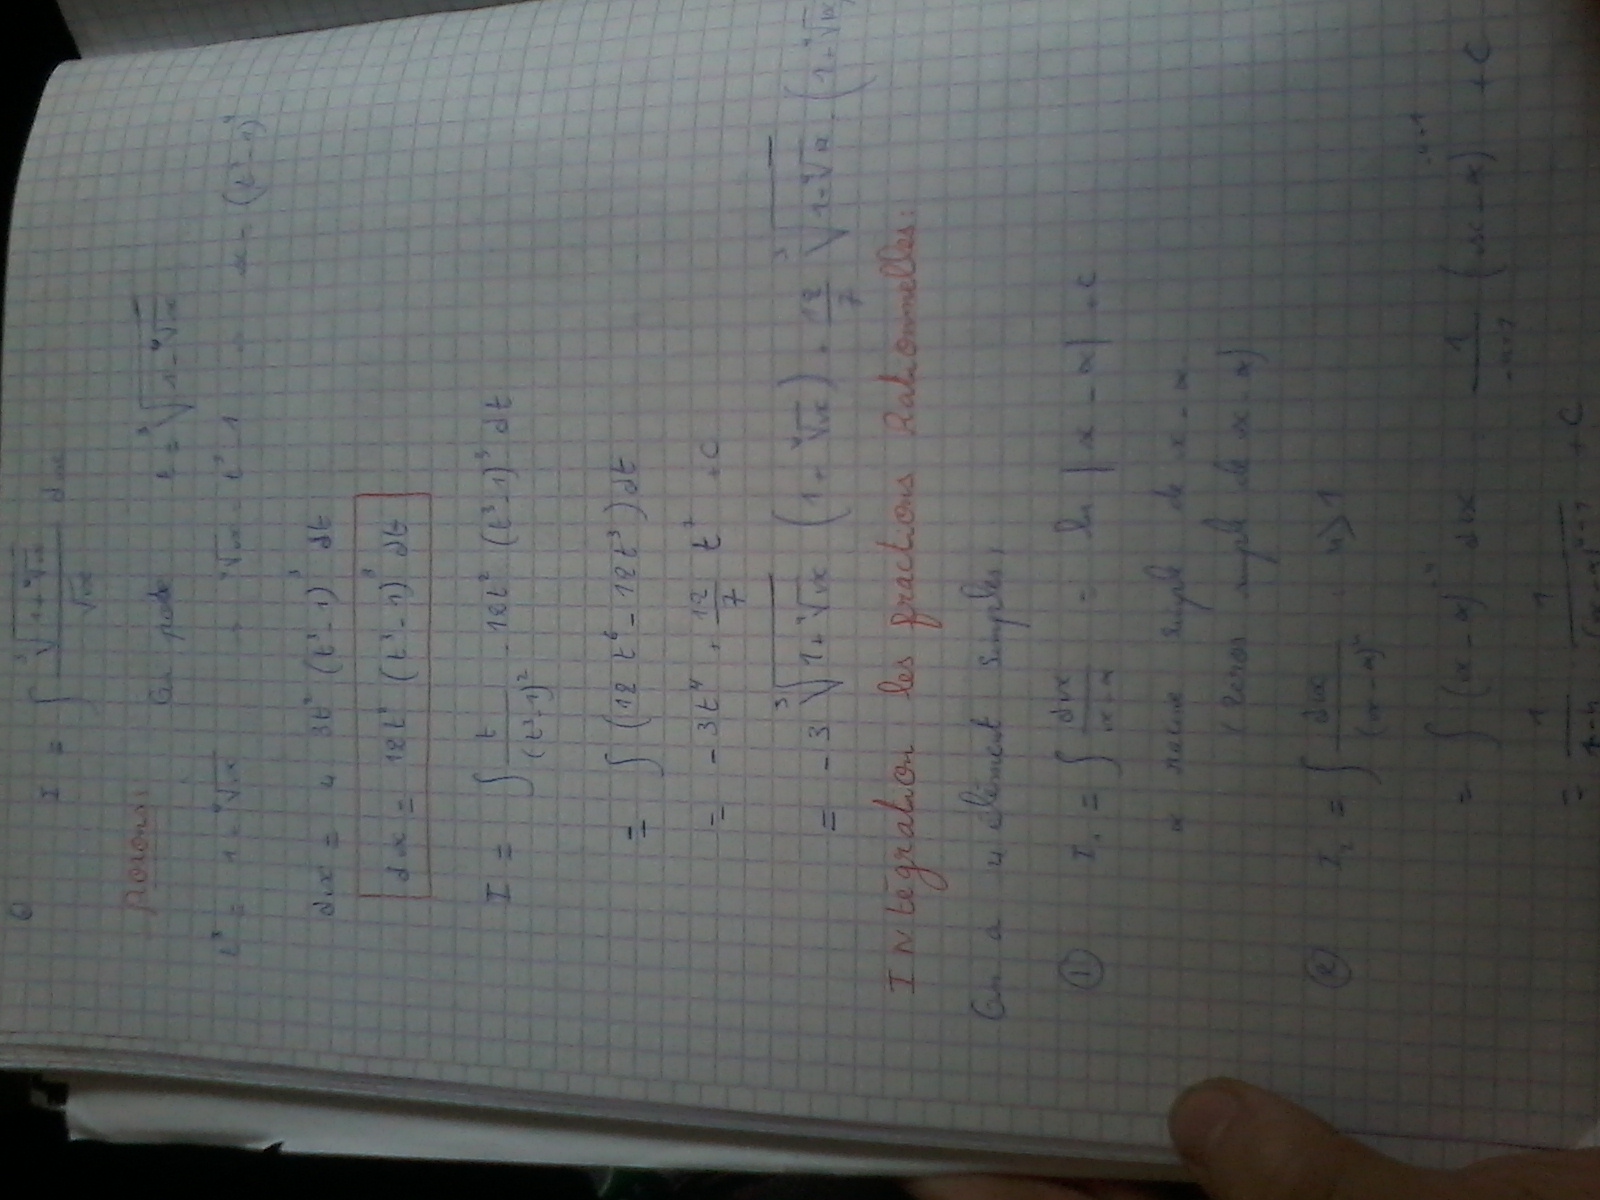 6
I = ∫ ∛(1+∜x) / √x dx
Posons:
On pose t = ∛(1+∜x)
t³ = 1+∜x → ∜x = t³-1 → x = (t³-1)⁴
dx = 4 3t² (t³-1)³ dt
dx = 12t² (t³-1)³ dt
I = ∫ t/(t³-1)² · 12t² (t³-1)³ dt
= ∫ (12 t⁶ - 12t³) dt
= -3t⁴ + 12/7 t⁷ + C
= -3 ∛(1+∜x) (1+∜x) + 12/7 ∛(1+∜x) · (1+∜x)
Intégration les fractions Rationnelles:
On a 4 élément simples,
① I₁ = ∫ dx/(x-α) = ln |x-α| + C
α racine simple de x-α
(zéros simple de x-α)
② I₂ = ∫ dx/(x-α)ⁿ n>1
= ∫ (x-α)⁻ⁿ dx = 1/(-n+1) (x-α)⁻ⁿ⁺¹ + C
= 1/(1-n) 1/(x-α)ⁿ⁻¹ + C